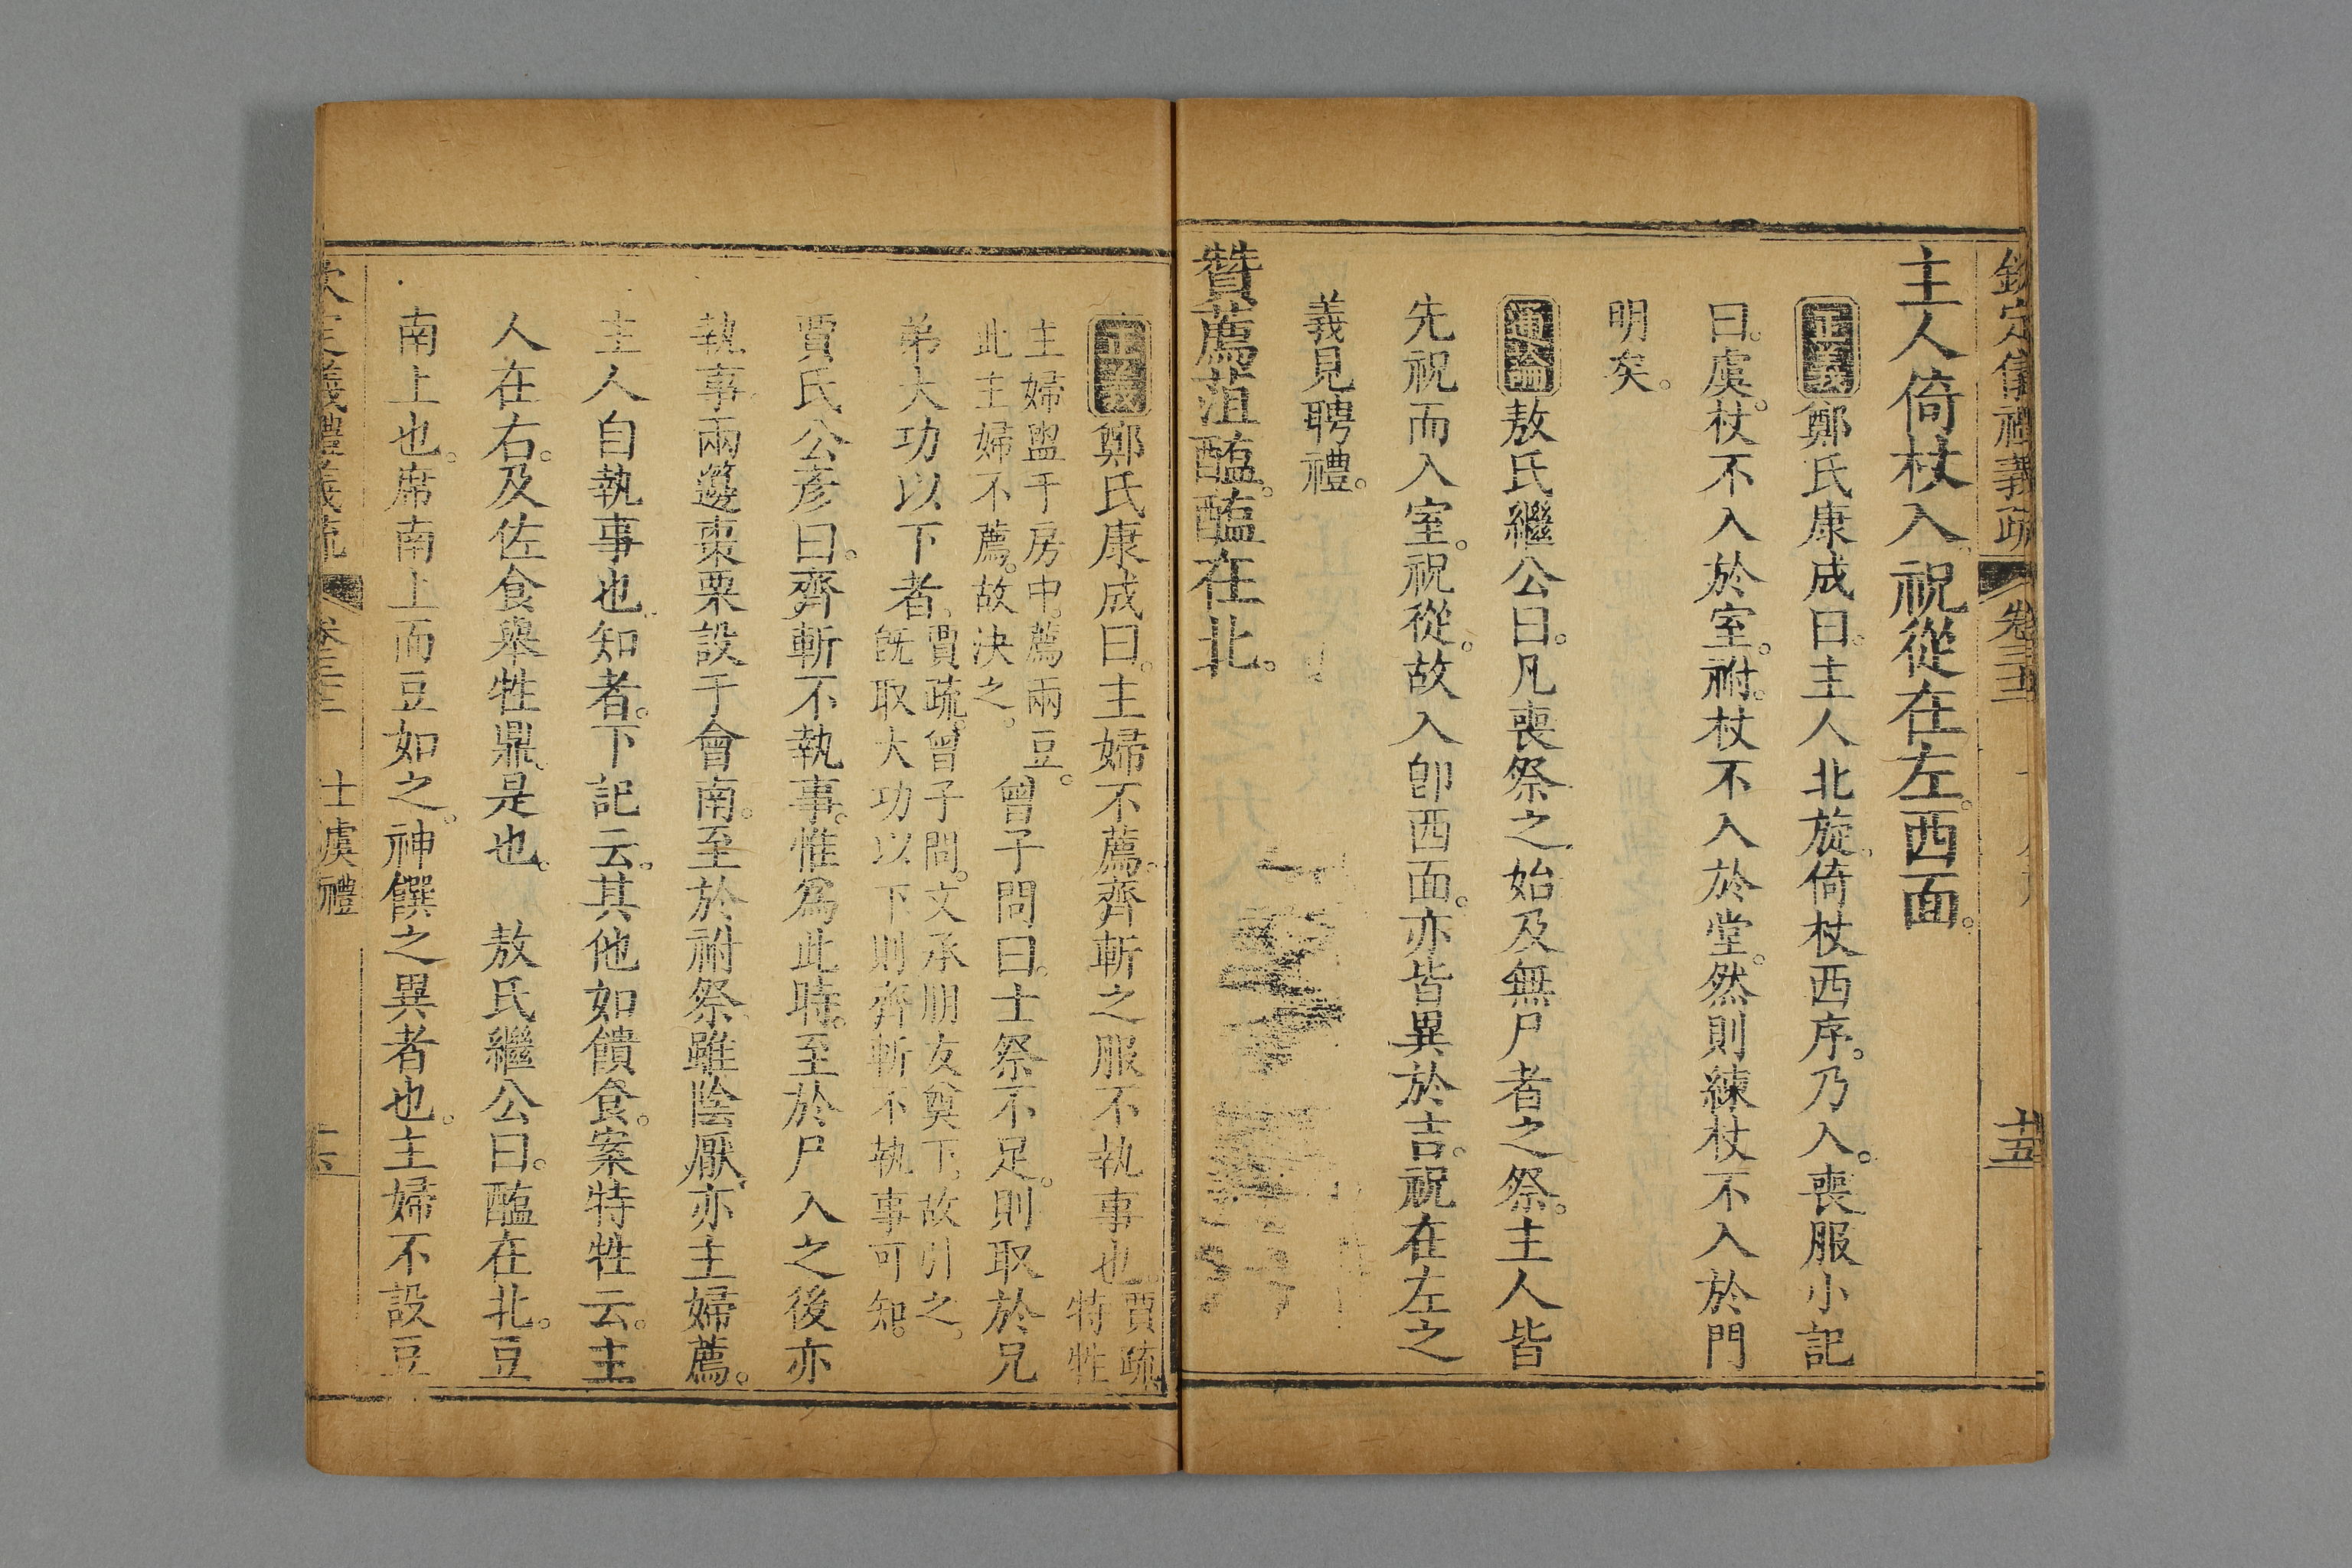 欽定儀禮義疏 卷三十三 十五
主人倚杖入祝從在左西面。
正義鄭氏康成曰。主人北旋。倚杖西序。乃入。喪服小記
曰。虞。杖不入於室。祔。杖不入於堂。然則練杖不入於門
明矣。
通論敖氏繼公曰。凡喪祭之始及無尸者之祭。主人皆
先祝而入室。祝從。故入卽西面。亦皆異於吉。祝在左之
義見聘禮。
贊薦菹醢。醢在北。
正義鄭氏康成曰。主婦不薦。齊斬之服不執事也。賈疏。特牲
主婦盥于房中。薦兩豆。此主婦不薦。故決之。曾子問曰。士祭不足。則取於兄
弟大功以下者。賈疏。曾子問。文承朋友奠下。故引之。旣取大功以下則齊斬不執事可知。
賈氏公彥曰。齊斬不執事。惟爲此時。至於尸入之後亦
執事。兩籩棗栗設于會南。至於祔祭雖陰厭。亦主婦薦。
主人自執事也。知者。下記云。其他如饋食。案特牲云。主
人在右。及佐食舉牲鼎。是也。 敖氏繼公曰。醢在北。豆
南上也。席南上而豆如之。神饌之異者也。主婦不設豆
欽定儀禮義疏 卷三十三 士虞禮